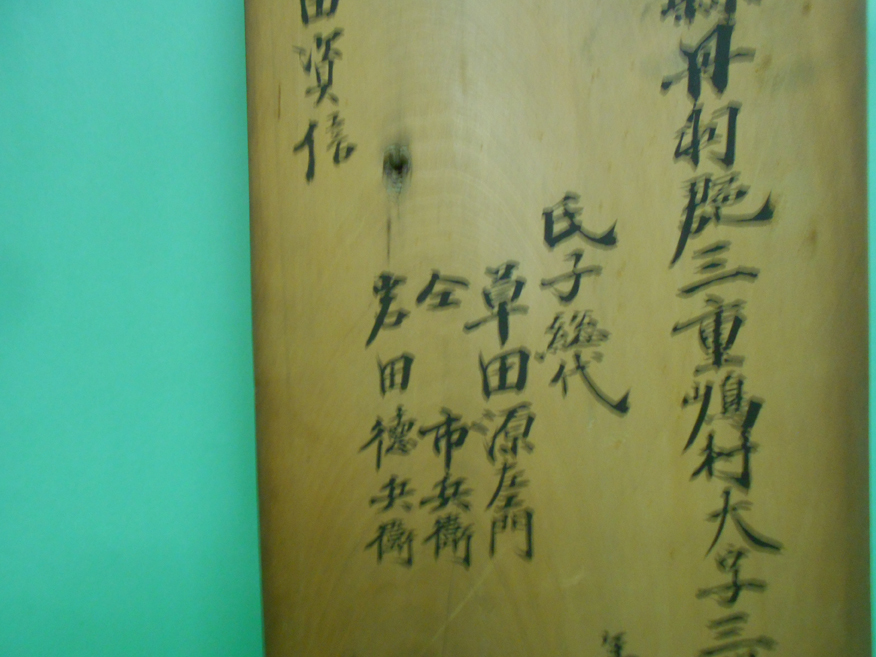 縣丹羽郡三重嶋村大字三
氏子総代
草田源左門
仝 市兵衞
岩田徳兵衞
田資信